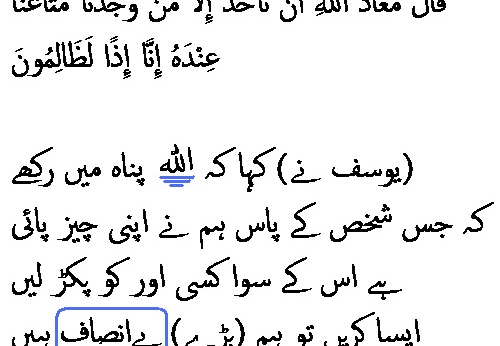 قال معاذ الله أن نأخذ إلا من وجدنا متاعنا
عِنْدَهُ إِنَّا إِذًا لَظَالِمُونَ
(یوسف نے) کہا کہ اللہ پناہ میں رکھے
کہ جس شخص کے پاس ہم نے اپنی چیز پائی
ہے اس کے سوا کسی اور کو پکڑ لیں
ایسا کریں تو ہم (بڑے) بےانصاف ہیں